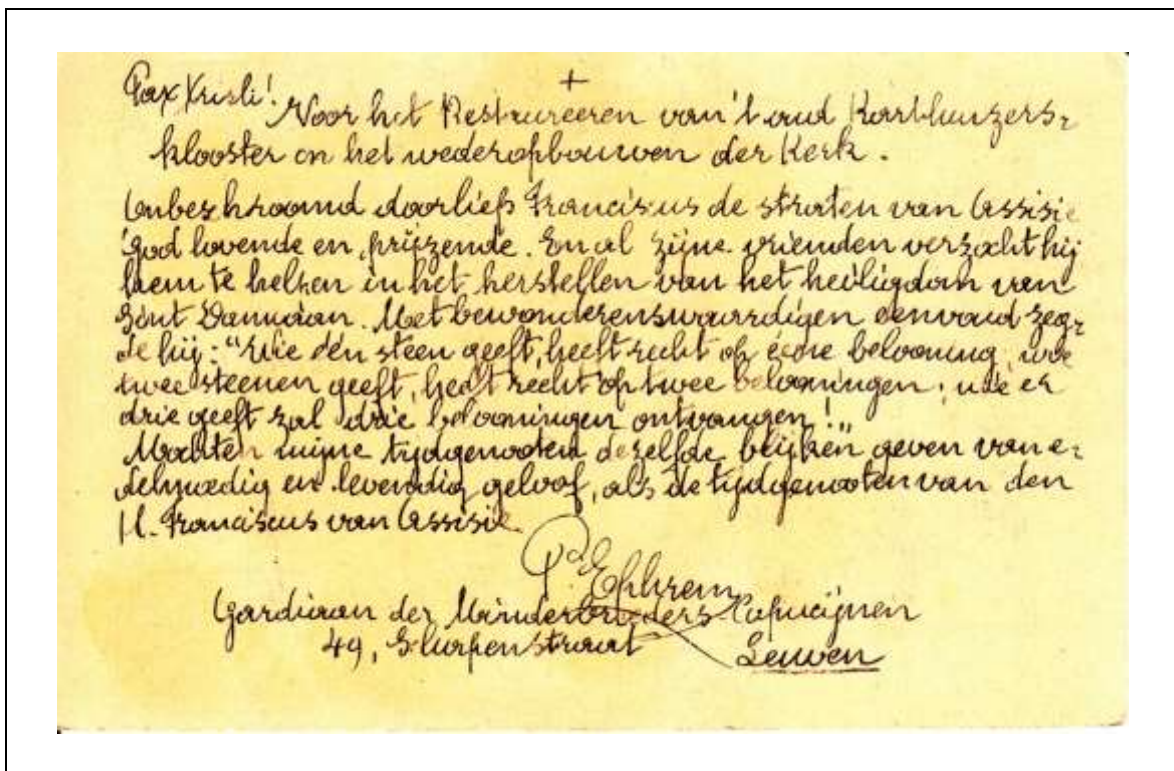 +
Pax Kristi!
Voor het Restaureeren van 't oud Karthuizers=
klooster en het wederopbouwen der Kerk.
Onbeschroomd doorliep Franciscus de straten van Assisië
God lovende en prijzende. En al zijne vrienden verzocht hij
hem te helpen in het herstellen van het heiligdom van
Sint Damiaan. Met bewonderenswaardigen eenvoud zeg=
de hij: "Wie één steen geeft, heeft recht op ééne belooning, wie
twee steenen geeft, heeft recht op twee belooningen; wie er
drie geeft zal drie belooningen ontvangen!"
Mochten mijne tijdgenooten dezelfde blijken geven van e=
delmoedig en levendig geloof, als de tijdgenooten van den
H. Franciscus van Assisië.
Pd. Ephrem
Gardiaan der Minderbroeders-Capucijnen
49, Slurpenstraat Leuven